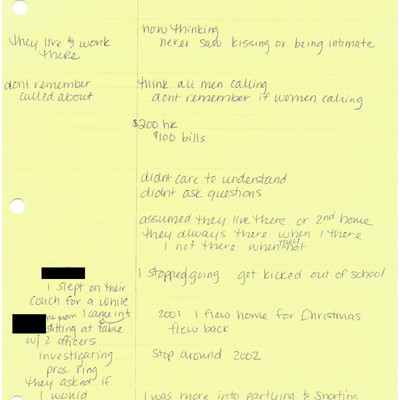 now thinking
they live & work never saw kissing or being intimate
there
dont remember think all men calling
called about dont remember if women calling
$200 hr
$100 bills
didnt care to understand
didnt ask questions
assumed they live there or 2nd home
they always there when I there
I not there when they not
I stopped going got kicked out of school
I slept on their
couch for a while
mom I came in &
sitting at table
2001 I flew home for Christmas
flew back
w/ 2 officers
investigating stop around 2002
pros. ring
they asked if
I would I was more into partying & snorting